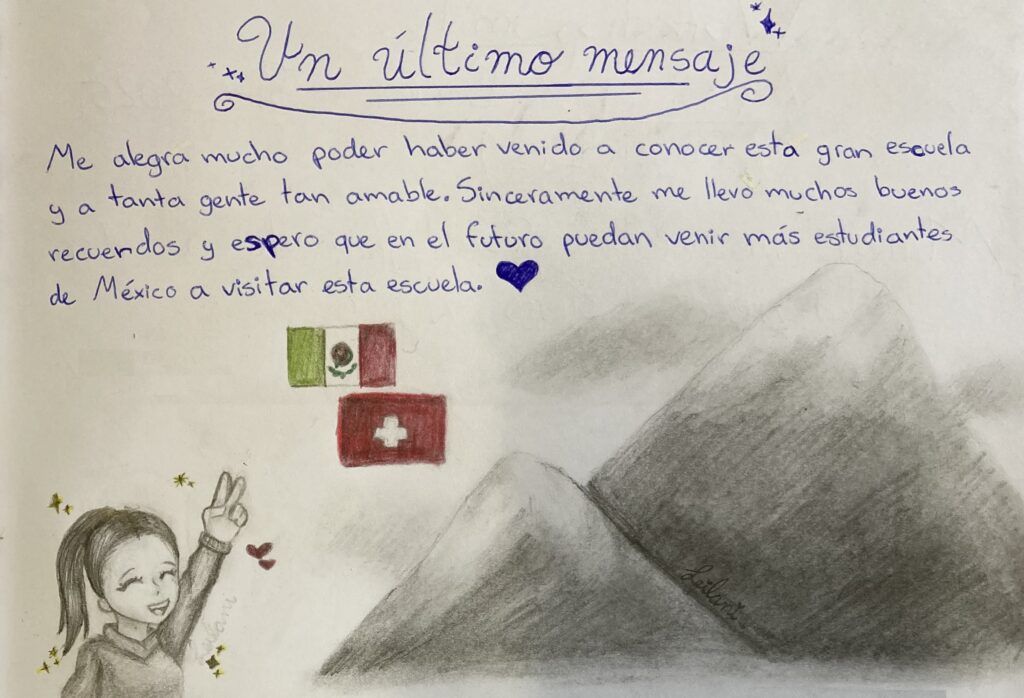 Un último mensaje
Me alegra mucho poder haber venido a conocer esta gran escuela
y a tanta gente tan amable. Sinceramente me llevo muchos buenos
recuerdos y espero que en el futuro puedan venir más estudiantes
de México a visitar esta escuela.
Leilani
Leilani